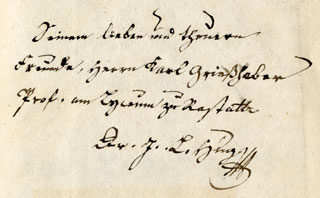 Seinem lieben und theuern
Freunde, Herrn Karl Grieshaber
Prof. am Lyceum zu Rastatt
Dr. J. L. Hug